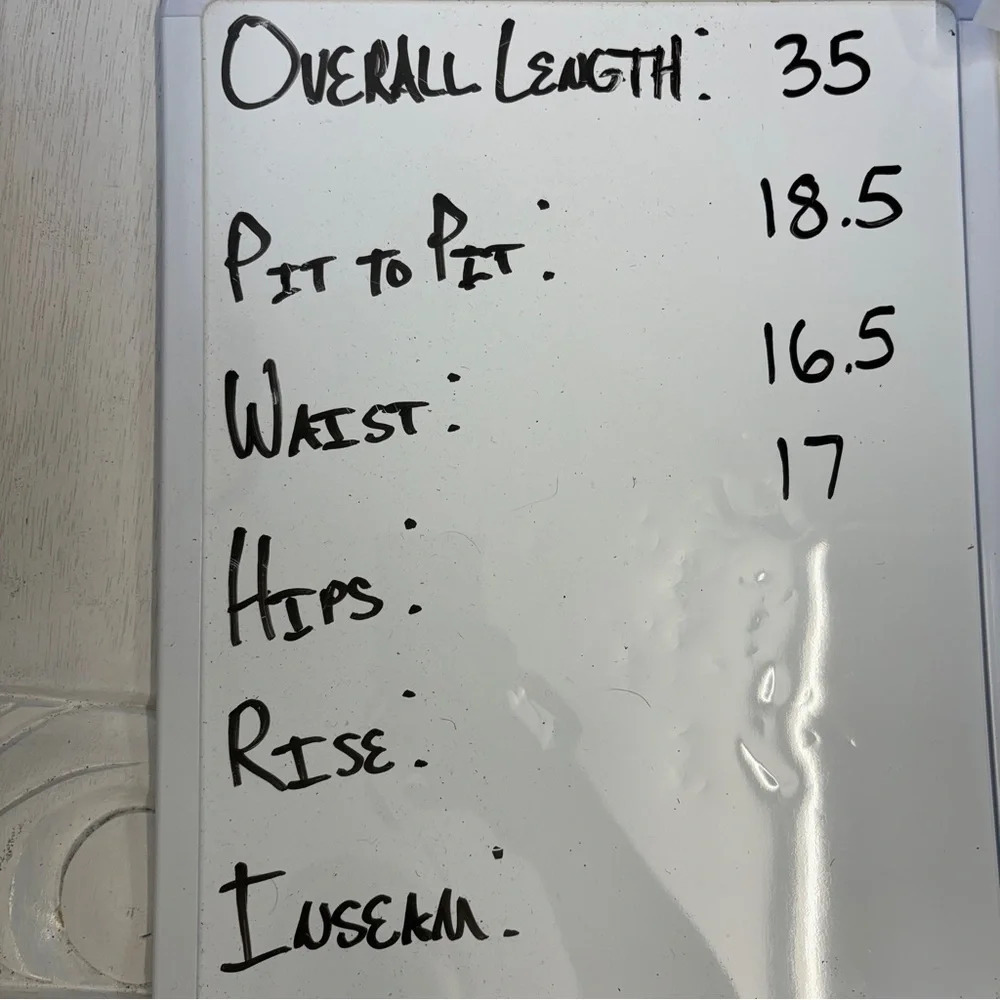 OVERALL LENGTH: 35
PIT TO PIT: 18.5
WAIST: 16.5
HIPS: 17
RISE:
INSEAM: